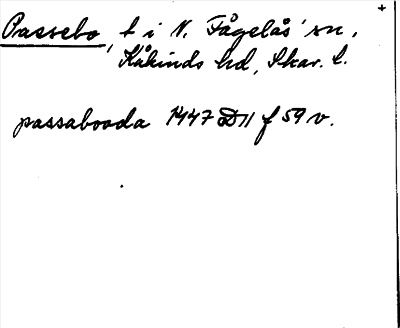 Passebo, t i N. Fågelås sn,
Kåkinds hd, Skar. l.
passabooda 1447 D11 f 59 v.